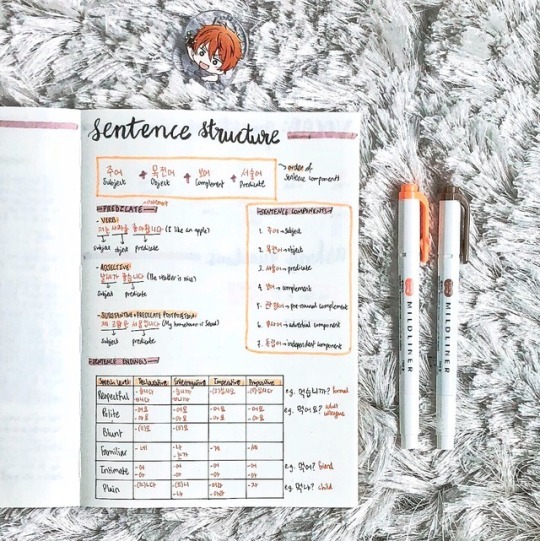 Sentence Structure
주어 + 목적어 + 보어 + 서술어
Subject Object Complement Predicate
→ order of
sentence components
PREDICATE
- VERB
(I like an apple)
subject object predicate
- ADJECTIVE
날씨가 좋습니다 (The weather is nice)
subject predicate
- SUBSTANTIVE + PREDICATE POSTPOSITION
제 고향은 서울입니다 (My hometown is Seoul)
subject predicate
SENTENCE COMPONENTS
1. 주어 → subject
2. 목적어 → object
3. 서술어 → predicate
4. 보어 → complement
5. 관형어 → pre-nominal complement
6. 부사어 → adverbial component
7. 독립어 → independent component
SENTENCE ENDINGS
Speech level Declarative Interrogative Imperative Propositive
Respectful e.g. 먹습니까? formal
Polite -어요 -어요 -어요 -어요 e.g. 먹어요? adult
-아요 -아요 -아요 -아요 colleague
Blunt
Familiar -네 -나 -게 -세
-는가
Intimate -어 -어 -어 -어 e.g. 먹어? friend
-아 -아 -아 -아
Plain -자 e.g. 먹나? child
-나
MILDLINER
MILDLINER